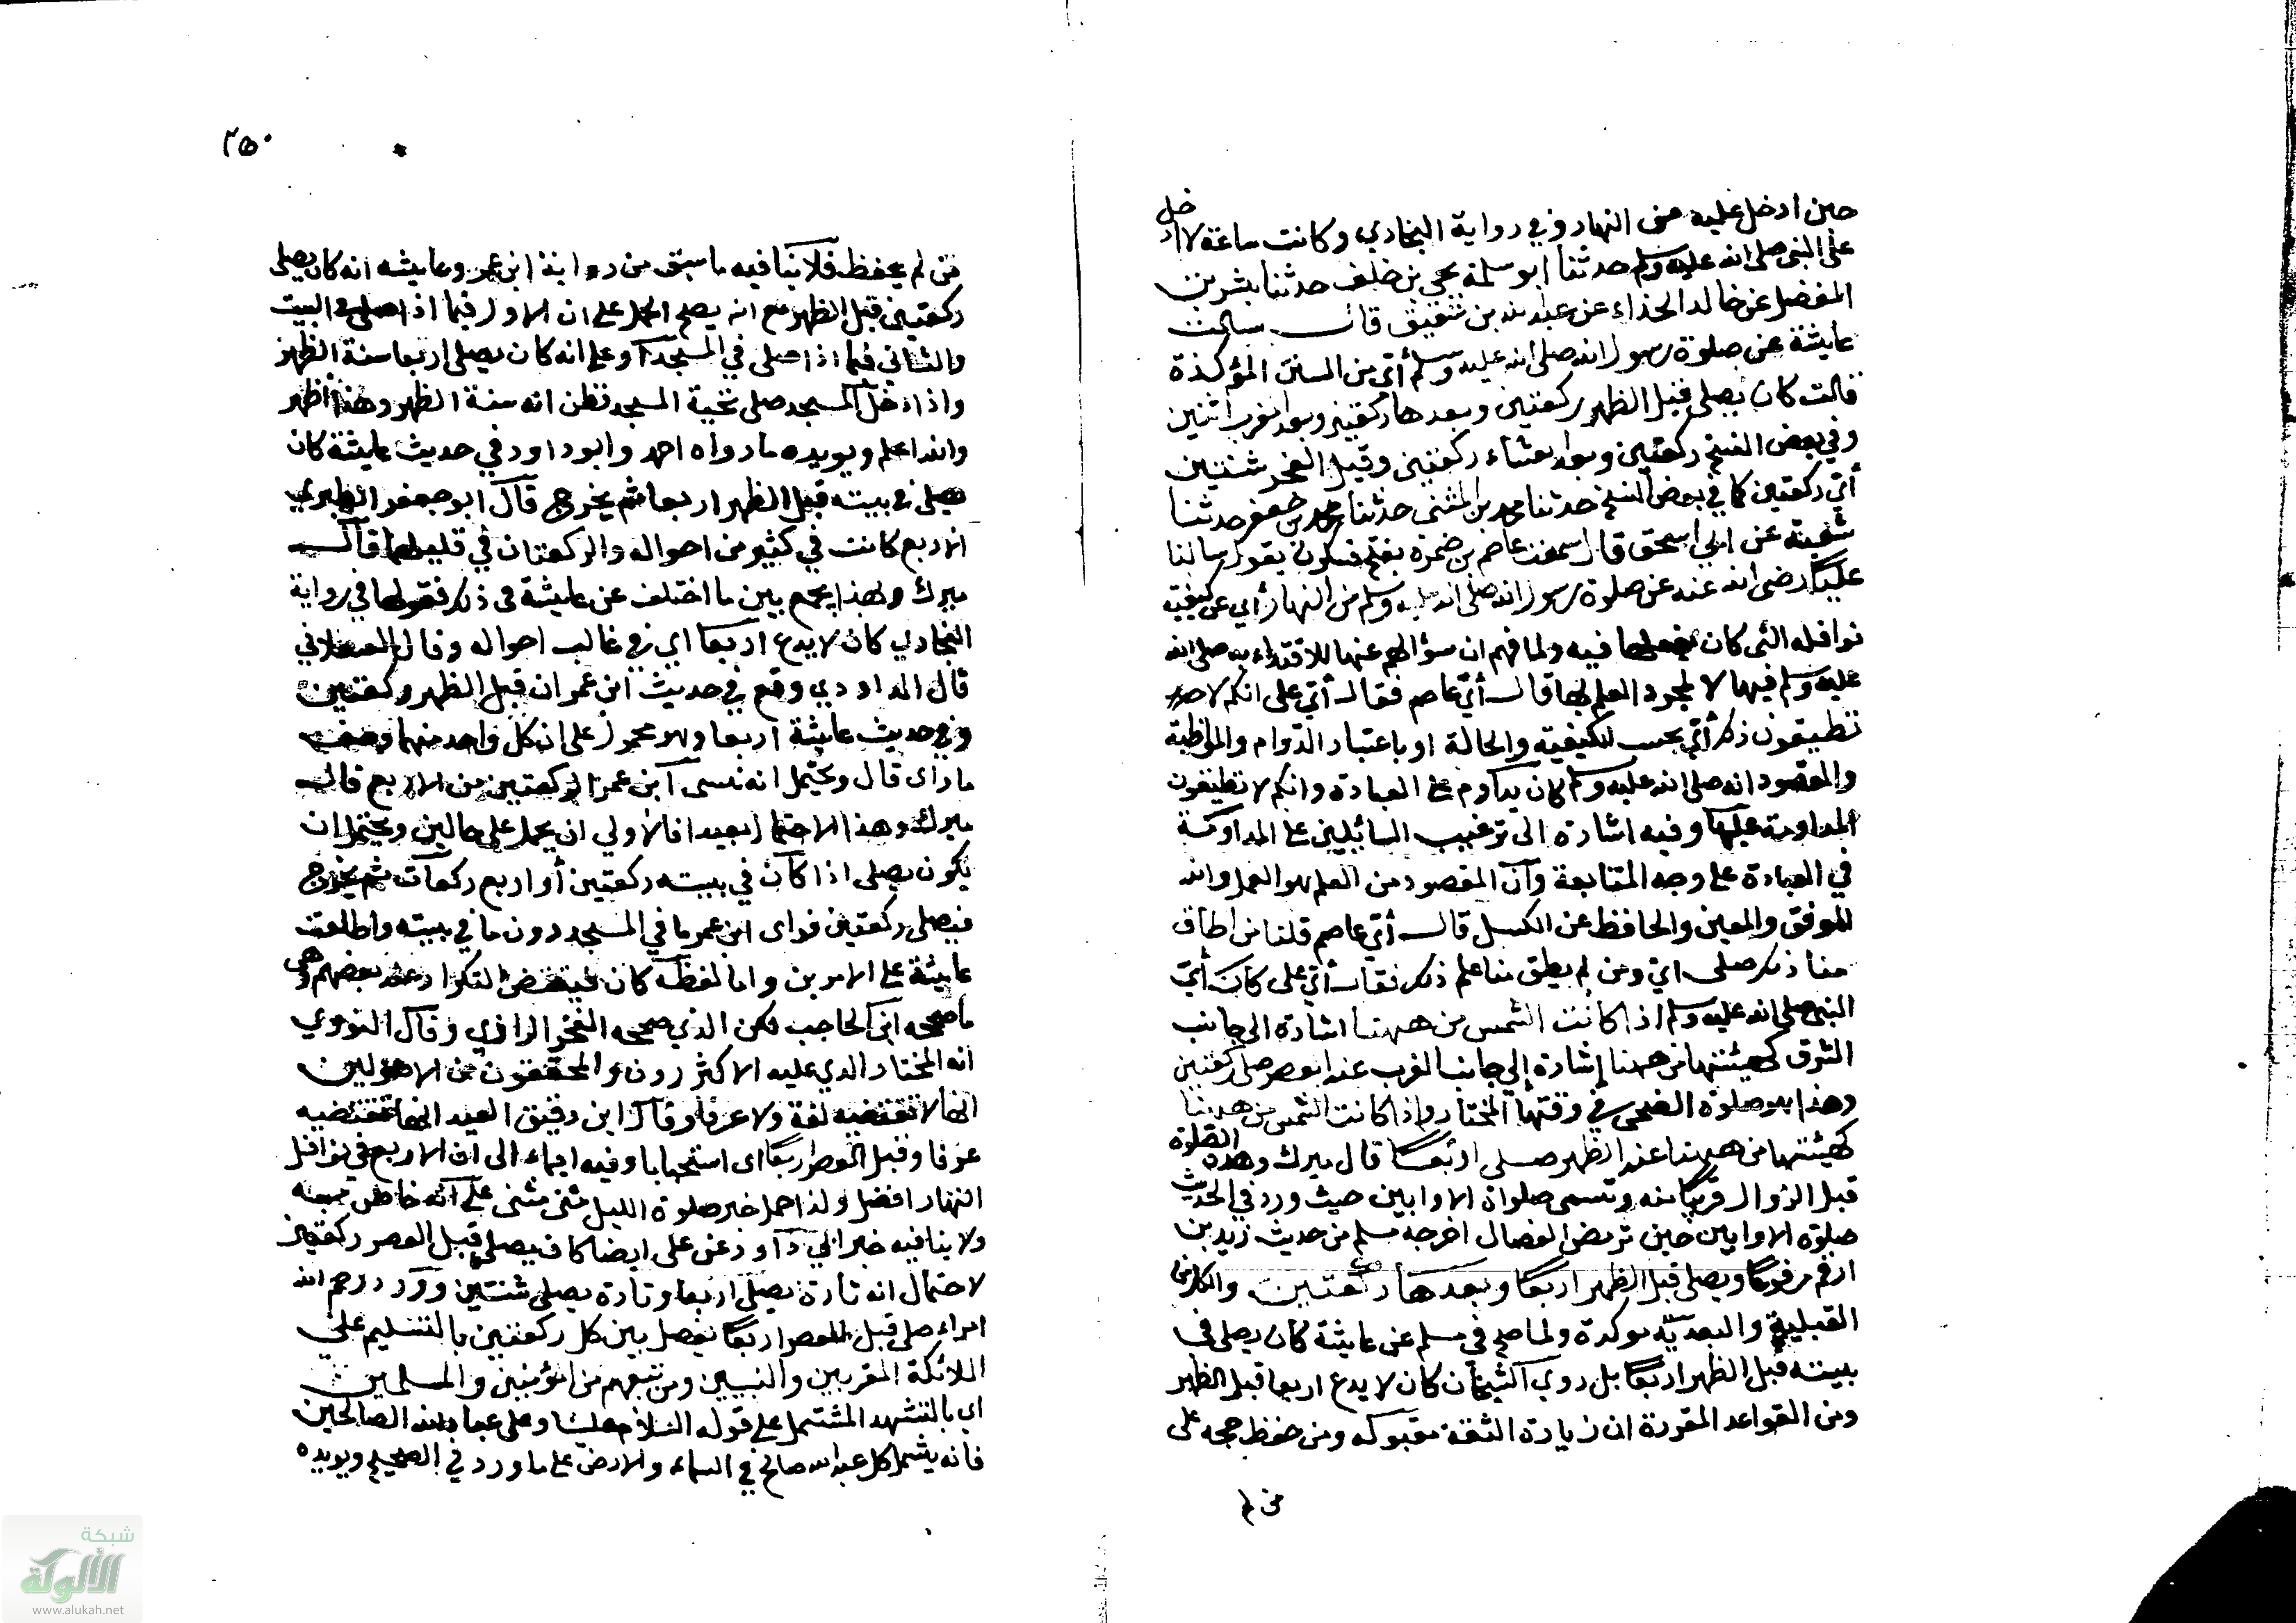 حين ادخل عليه من النهار وفي رواية البخاري وكانت ساعة لا ادخل
على النبي صلى الله عليه وسلم حدثنا ابو سلمة يحيى بن خلف حدثنا بشر بن
المفضل عن خالد الحذاء عن عبد الله بن شقيق قال سالت
عايشة عن صلوة رسول الله صلى الله عليه وسلم أي من السنن المؤكدة
قالت كان يصلي قبل الظهر ركعتين وبعدها ركعتين وبعد المغرب اثنين
وفي بعض النسخ ركعتين وبعد العشاء ركعتين وقبل الفجر ثنتين
أي ركعتين كما في بعض النسخ حدثنا محمد بن المثنى حدثنا محمد بن جعفر حدثنا
شعبة عن ابي اسحق قال سمعت عاصم بن ضمرة بفتح فسكون يقول سالنا
عليًا رضي الله عنه عن صلوة رسول الله صلى الله عليه وسلم من النهار أي عن كيفية
نوافله التي كان يفعلها فيه ولما فهم ان سؤالهم عنها للاقتداء به صلى الله
عليه وسلم فيها لا لمجرد العلم بها قال أي عاصم فقال أي علي انكم لا
تطيقون ذلك أي بحسب الكيفية والحالة او باعتبار الدوام والمواظبة
والمقصود انه صلى الله عليه وسلم كان يداوم على العبادة وانكم لا تطيقون
المداومة عليها وفيه اشارة الى ترغيب السائلين على المداومة
في العبادة على وجه المتابعة وان المقصود من العلم هو العمل والله
الموفق والمعين والحافظ عن الكسل قال أي عاصم قلنا من اطاق
منا ذلك صلى اي ومن لم يطق منا علم ذلك فقال أي علي كان أي
النبي صلى الله عليه وسلم اذا كانت الشمس من ههنا اشارة الى جانب
الشرق كهيئتها من ههنا إشارة إلى جانب الغرب عند العصر صلى ركعتين
وهذا هو صلوة الضحى في وقتها المختار واذا كانت الشمس من ههنا
كهيئتها من ههنا عند الظهر صلى اربعًا قال ميرك وهذه الصلوة
قبل الزوال قريبًا منه وتسمى صلوة الاوابين حيث ورد في الحديث
صلوة الاوابين حين ترمض الفصال اخرجه مسلم من حديث زيد بن
ارقم مرفوعًا ويصلي قبل الظهر اربعًا وبعدها ركعتين والكل من
القبلية والبعدية موكدة ولما صح في مسلم عن عايشة كان يصلي في
بيته قبل الظهر اربعًا بل روى الشيخان كان لا يدع اربعا قبل الظهر
ومن القواعد المقررة ان زيادة الثقة مقبولة ومن حفظ حجة على
من لم
٢٥٠
من لم يحفظ فلا ينافيه ما سبق من رواية ابن عمر وعايشه انه كان يصلي
ركعتين قبل الظهر مع انه يصلح الحمل على ان الاول فيما اذا صلى في البيت
والثاني فيما اذا صلى في المسجد او على انه كان يصلي اربعا سنة الظهر
واذا دخل المسجد صلى تحية المسجد فظن انه سنة الظهر وهذا اظهر
والله اعلم ويويده ما رواه احمد وابو داود في حديث عايشة كان
يصلي في بيته قبل الظهر اربعا ثم يخرج قال ابو جعفر الطبري
الاربع كانت في كثير من احواله والركعتان في قليلها قال
ميرك وبهذا يجمع بين ما اختلف عن عايشة في ذلك فقولها في رواية
البخاري كان لا يدع اربعا اي في غالب احواله وقال العسقلاني
قال الداودي وقع في حديث ابن عمر ان قبل الظهر ركعتين
وفي حديث عايشة اربعا وهو محمول على ان كل واحد منهما وصف
ما راى قال ويحتمل انه نسى ابن عمر الركعتين من الاربع قال
ميرك وهذا الاحتمال بعيد فالاولى ان يحمل على حالين ويحتمل ان
يكون يصلي اذا كان في بيته ركعتين أو اربع ركعات ثم يخرج
فيصلي ركعتين فراى ابن عمر ما في المسجد دون ما في بيته واطلعت
عايشة على الامرين واما لفظة كان فيقتضي التكرار عند بعضهم وهي
ما صححه ابن الحاجب لكن الذي صححه الفخر الرازي وقال النووي
انه المختار الذي عليه الاكثرون والمحققون من الاصوليين
انها لا تقتضيه لغة ولا عرفا وقال ابن دقيق العيد انها تقتضيه
عرفا وقبل العصر اربعًا اى استحبابا وفيه ايماء الى ان الاربع في نوافل
النهار افضل ولذا حمل خبر صلوة الليل مثنى مثنى على انه خاطب
ولا ينافيه خبر ابي داود عن علي ايضا كان يصلي قبل العصر ركعتين
لاحتمال انه تارة يصلي اربعا وتارة يصلي ثنتين وورد رحم الله
امراء صلى قبل العصر اربعًا يفصل بين كل ركعتين بالتسليم على
الملائكة المقربين والنبيين ومن تبعهم من المؤمنين والمسلمين
اي بالتشهد المشتمل على قوله السلام علينا وعلى عباد الله الصالحين
فانه يشمل كل عبد لله صالح في السماء والارض على ما ورد في الصحيح ويويده
شبكة
الألوكة
www.alukah.net